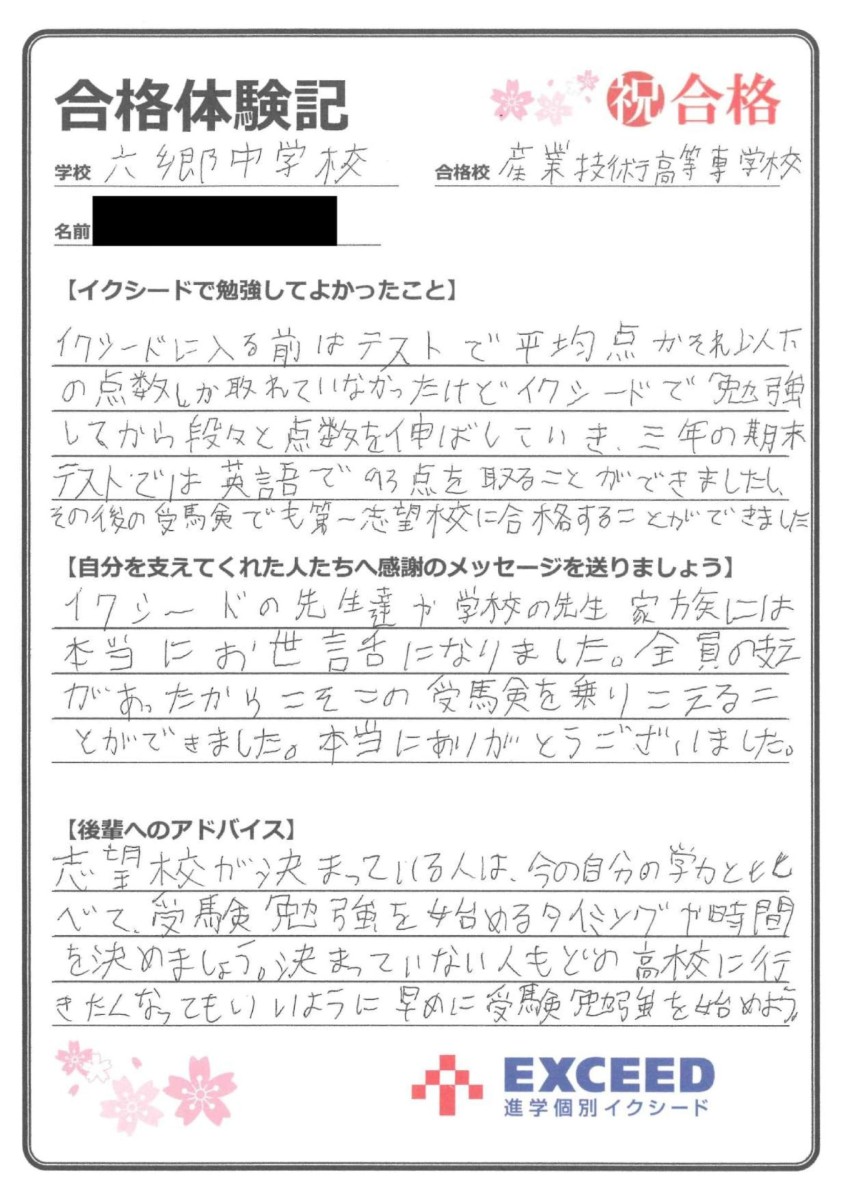 合格体験記
祝 合格
学校 六郷中学校
合格校 産業技術高等専学校
名前
【イクシードで勉強してよかったこと】
イクシードに入る前はテストで平均点かそれ以下
の点数しか取れていなかったけどイクシードで勉強
してから段々と点数を伸ばしていき、三年の期末
テストでは英語で93点を取ることができましたし、
その後の受験でも第一志望校に合格することができました
【自分を支えてくれた人たちへ感謝のメッセージを送りましょう】
イクシードの先生達や学校の先生 家族には
本当にお世話になりました。全員の支え
があったからこそこの受験を乗りこえるこ
とができました。本当にありがとうございました。
【後輩へのアドバイス】
志望校が決まっている人は、今の自分の学力と比
べて、受験勉強を始めるタイミングや時間
を決めましょう。決まっていない人もどの高校に行
きたくなってもいいように早めに受験勉強を始めよう。
EXCEED
進学個別イクシード